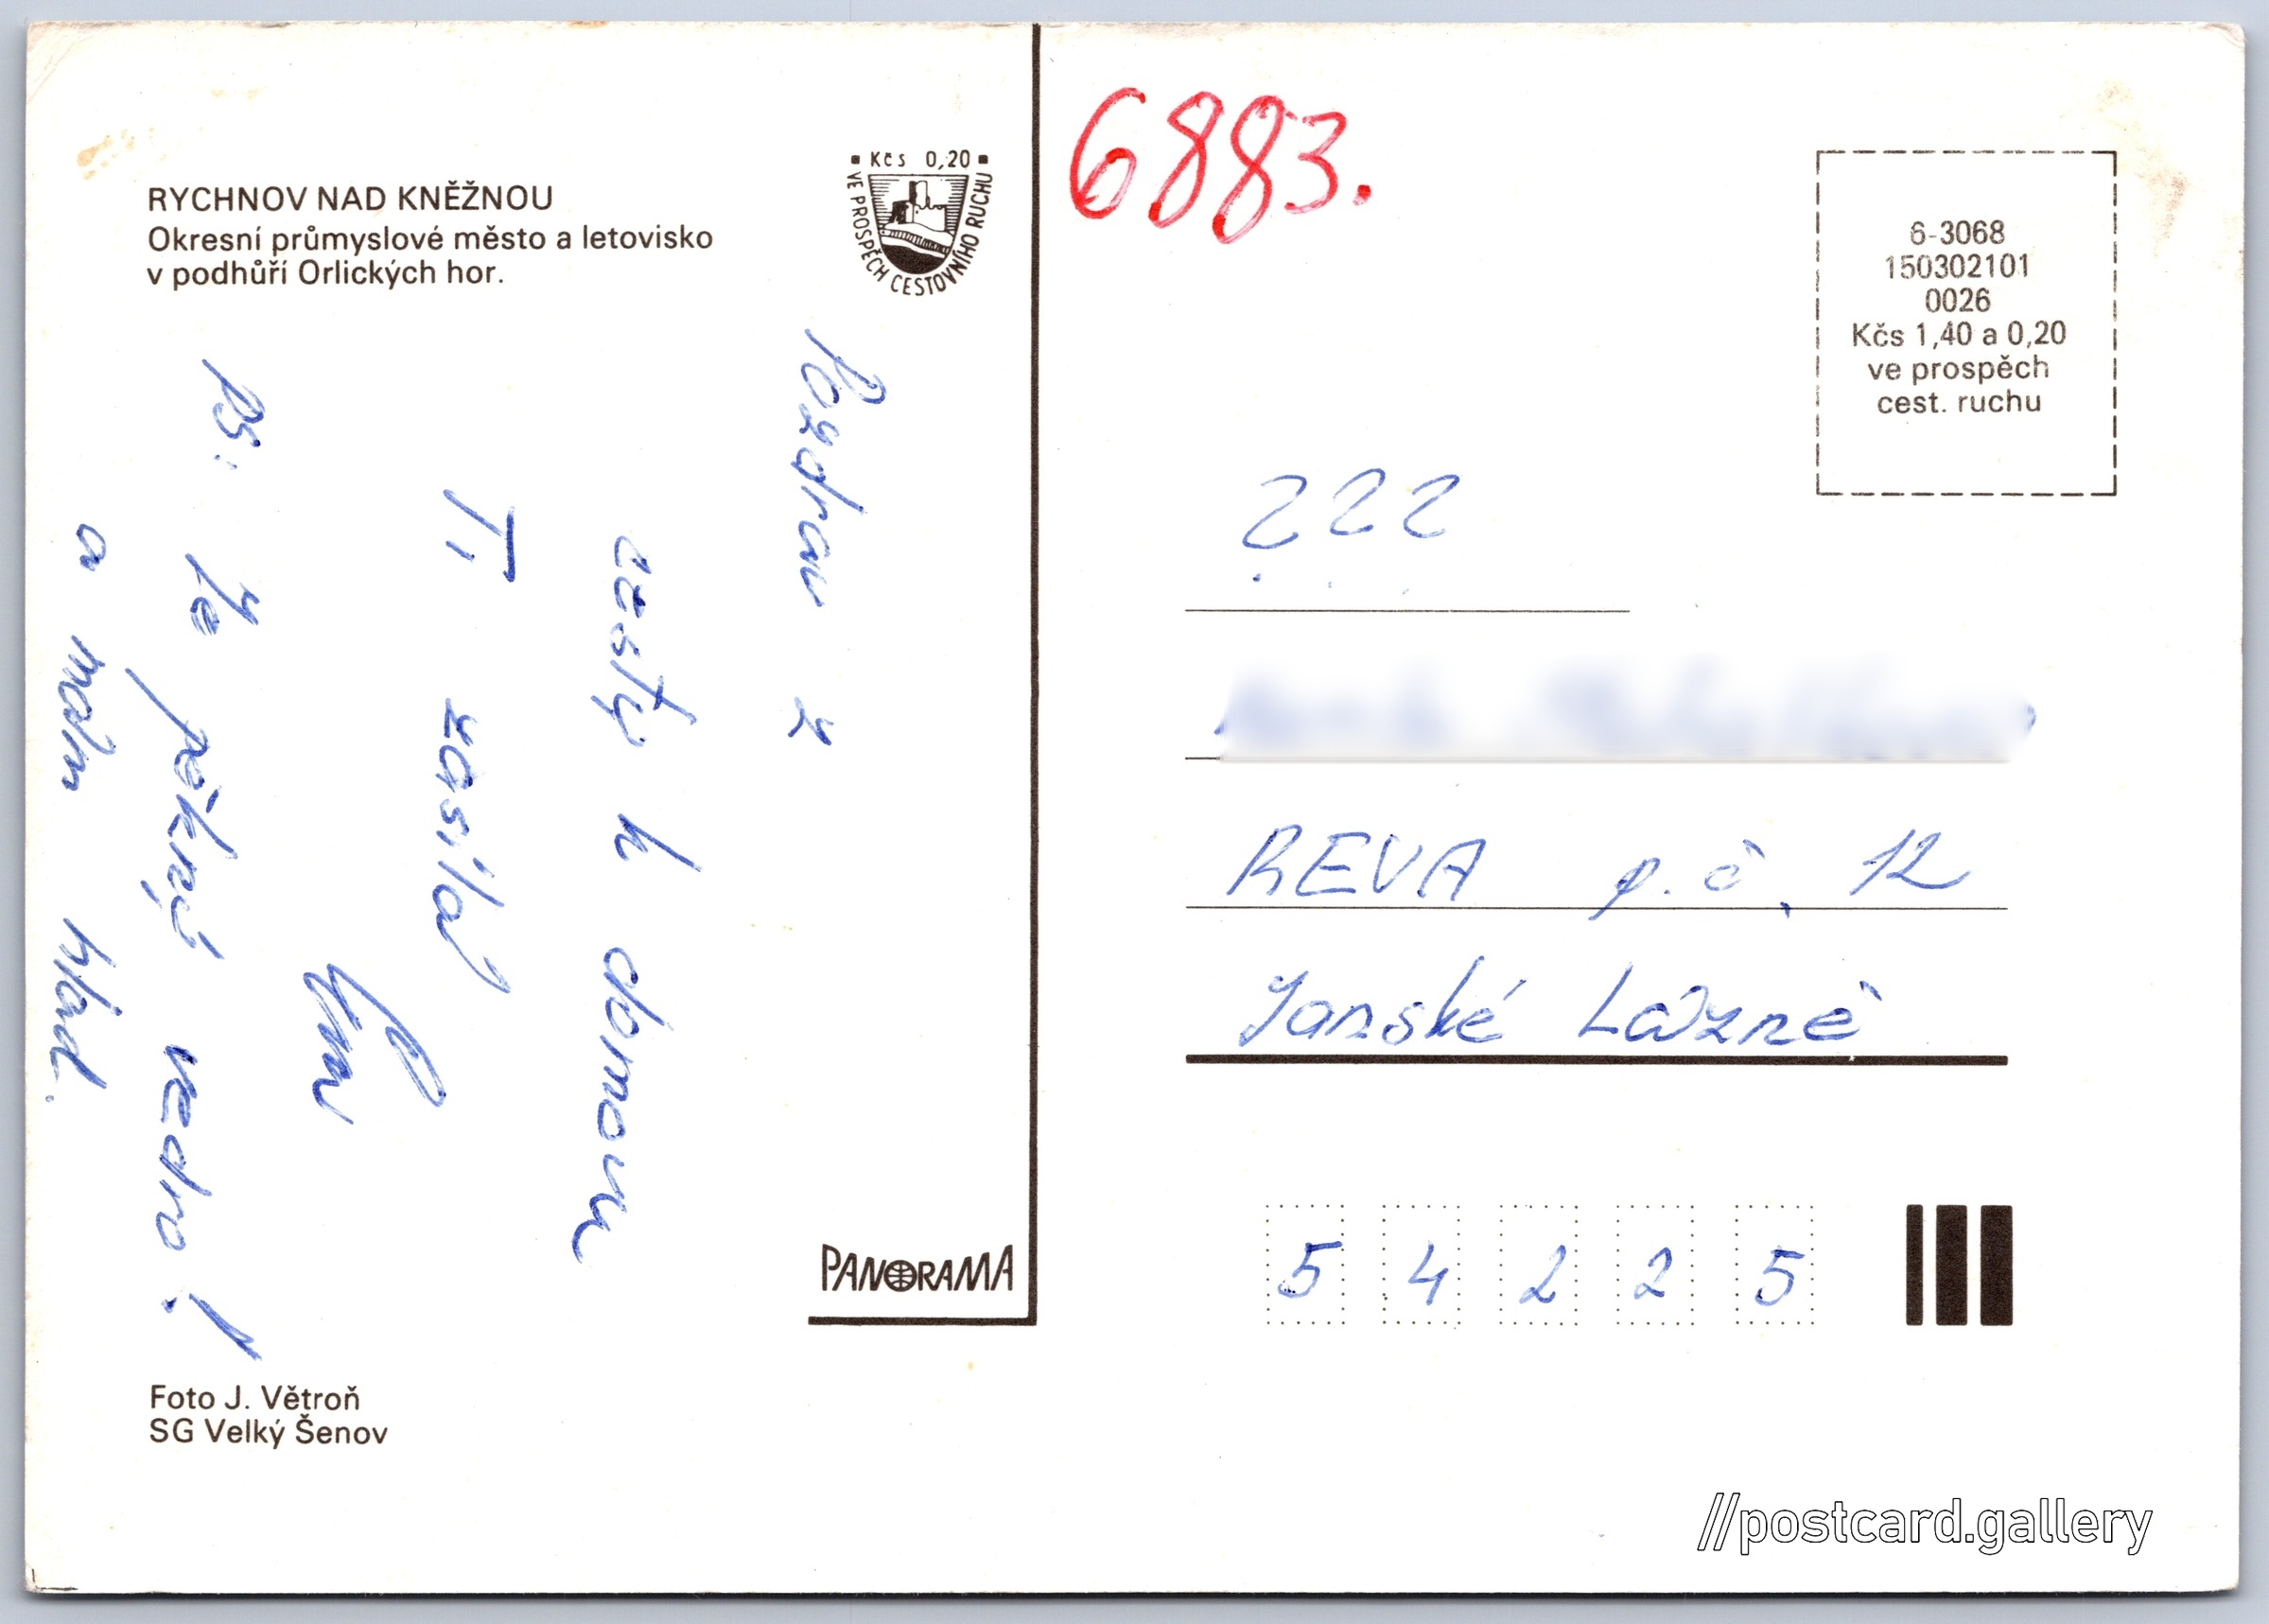 RYCHNOV NAD KNĚŽNOU
Okresní průmyslové město a letovisko
v podhůří Orlických hor.
▪ Kčs 0,20 ▪
VE PROSPĚCH CESTOVNÍHO RUCHU
Pozdrav z
cesty k domovu
Ti zasílá
PS: Je pěkný vedro!
a mám hlad.
PANORAMA
Foto J. Větroň
SG Velký Šenov
6883.
6-3068
150302101
0026
Kčs 1,40 a 0,20
ve prospěch
cest. ruchu
???
REVA p.č. 12
Janské Lázně
5 4 2 2 5
//postcard.gallery